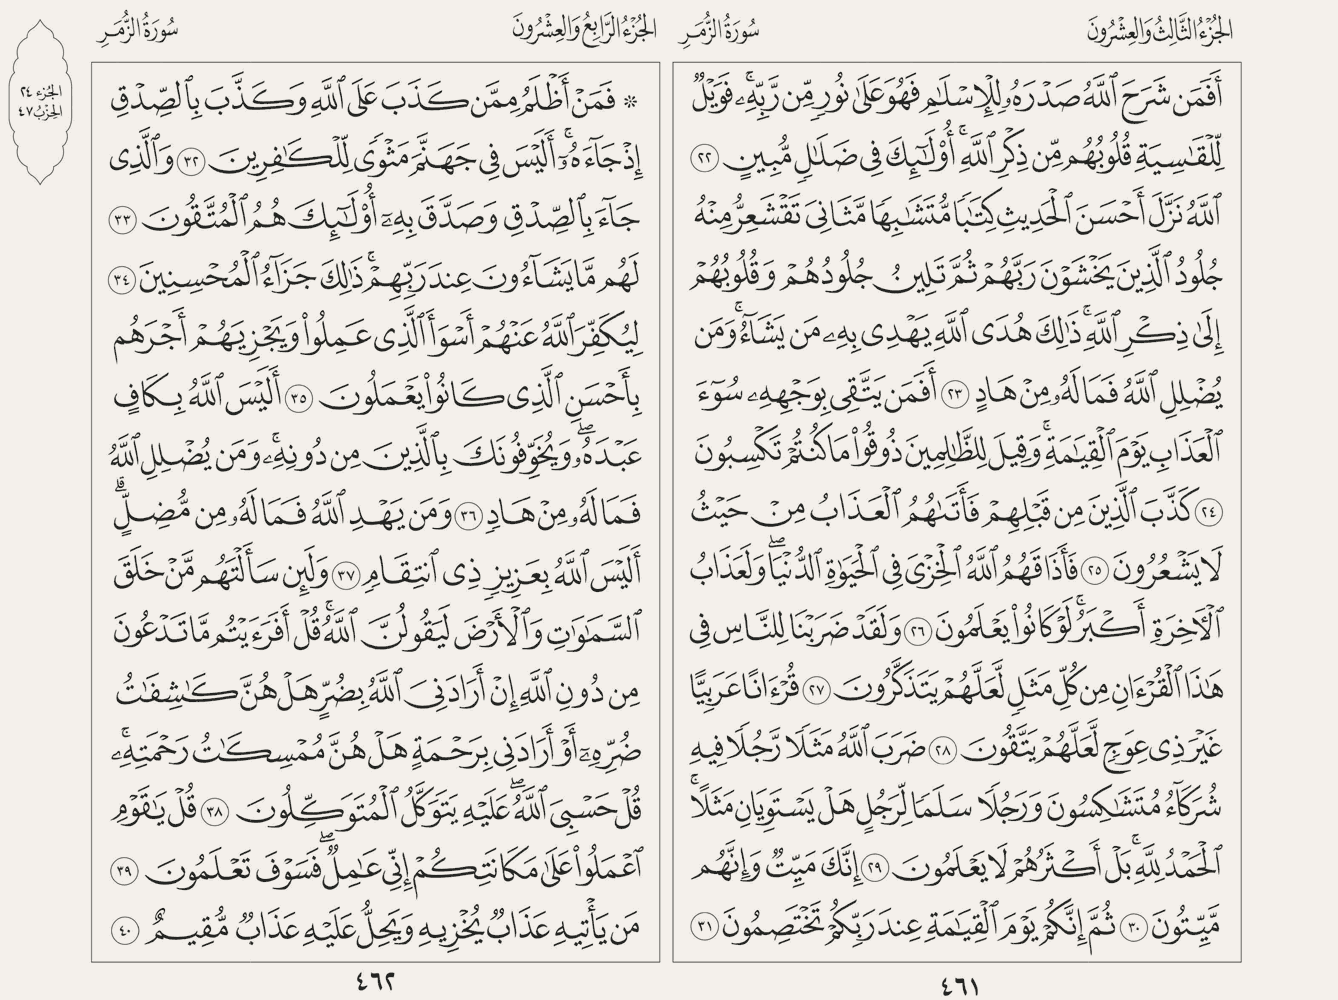 الجزء الثالث والعشرون
سورة الزمر
أَفَمَن شَرَحَ ٱللَّهُ صَدْرَهُۥ لِلْإِسْلَٰمِ فَهُوَ عَلَىٰ نُورٍ مِّن رَّبِّهِۦۚ فَوَيْلٌ
لِّلْقَٰسِيَةِ قُلُوبُهُم مِّن ذِكْرِ ٱللَّهِۚ أُو۟لَٰٓئِكَ فِى ضَلَٰلٍ مُّبِينٍ ٢٢
ٱللَّهُ نَزَّلَ أَحْسَنَ ٱلْحَدِيثِ كِتَٰبًا مُّتَشَٰبِهًا مَّثَانِىَ تَقْشَعِرُّ مِنْهُ
جُلُودُ ٱلَّذِينَ يَخْشَوْنَ رَبَّهُمْ ثُمَّ تَلِينُ جُلُودُهُمْ وَقُلُوبُهُمْ
إِلَىٰ ذِكْرِ ٱللَّهِۚ ذَٰلِكَ هُدَى ٱللَّهِ يَهْدِى بِهِۦ مَن يَشَآءُۚ وَمَن
يُضْلِلِ ٱللَّهُ فَمَا لَهُۥ مِنْ هَادٍ ٢٣ أَفَمَن يَتَّقِى بِوَجْهِهِۦ سُوٓءَ
ٱلْعَذَابِ يَوْمَ ٱلْقِيَٰمَةِۚ وَقِيلَ لِلظَّٰلِمِينَ ذُوقُوا۟ مَا كُنتُمْ تَكْسِبُونَ
٢٤ كَذَّبَ ٱلَّذِينَ مِن قَبْلِهِمْ فَأَتَىٰهُمُ ٱلْعَذَابُ مِنْ حَيْثُ
لَا يَشْعُرُونَ ٢٥ فَأَذَاقَهُمُ ٱللَّهُ ٱلْخِزْىَ فِى ٱلْحَيَوٰةِ ٱلدُّنْيَاۖ وَلَعَذَابُ
ٱلْءَاخِرَةِ أَكْبَرُۚ لَوْ كَانُوا۟ يَعْلَمُونَ ٢٦ وَلَقَدْ ضَرَبْنَا لِلنَّاسِ فِى
هَٰذَا ٱلْقُرْءَانِ مِن كُلِّ مَثَلٍ لَّعَلَّهُمْ يَتَذَكَّرُونَ ٢٧ قُرْءَانًا عَرَبِيًّا
غَيْرَ ذِى عِوَجٍ لَّعَلَّهُمْ يَتَّقُونَ ٢٨ ضَرَبَ ٱللَّهُ مَثَلًا رَّجُلًا فِيهِ
شُرَكَآءُ مُتَشَٰكِسُونَ وَرَجُلًا سَلَمًا لِّرَجُلٍ هَلْ يَسْتَوِيَانِ مَثَلًاۚ
ٱلْحَمْدُ لِلَّهِۚ بَلْ أَكْثَرُهُمْ لَا يَعْلَمُونَ ٢٩ إِنَّكَ مَيِّتٌ وَإِنَّهُم
مَّيِّتُونَ ٣٠ ثُمَّ إِنَّكُمْ يَوْمَ ٱلْقِيَٰمَةِ عِندَ رَبِّكُمْ تَخْتَصِمُونَ ٣١
٤٦١
الجزء الرابع والعشرون
سورة الزمر
الجزء ٢٤
الحزب ٤٧
۞ فَمَنْ أَظْلَمُ مِمَّن كَذَبَ عَلَى ٱللَّهِ وَكَذَّبَ بِٱلصِّدْقِ
إِذْ جَآءَهُۥٓۚ أَلَيْسَ فِى جَهَنَّمَ مَثْوًى لِّلْكَٰفِرِينَ ٣٢ وَٱلَّذِى
جَآءَ بِٱلصِّدْقِ وَصَدَّقَ بِهِۦٓ أُو۟لَٰٓئِكَ هُمُ ٱلْمُتَّقُونَ ٣٣
لَهُم مَّا يَشَآءُونَ عِندَ رَبِّهِمْۚ ذَٰلِكَ جَزَآءُ ٱلْمُحْسِنِينَ ٣٤
لِيُكَفِّرَ ٱللَّهُ عَنْهُمْ أَسْوَأَ ٱلَّذِى عَمِلُوا۟ وَيَجْزِيَهُمْ أَجْرَهُم
بِأَحْسَنِ ٱلَّذِى كَانُوا۟ يَعْمَلُونَ ٣٥ أَلَيْسَ ٱللَّهُ بِكَافٍ
عَبْدَهُۥۖ وَيُخَوِّفُونَكَ بِٱلَّذِينَ مِن دُونِهِۦۚ وَمَن يُضْلِلِ ٱللَّهُ
فَمَا لَهُۥ مِنْ هَادٍ ٣٦ وَمَن يَهْدِ ٱللَّهُ فَمَا لَهُۥ مِن مُّضِلٍّۗ
أَلَيْسَ ٱللَّهُ بِعَزِيزٍ ذِى ٱنتِقَامٍ ٣٧ وَلَئِن سَأَلْتَهُم مَّنْ خَلَقَ
ٱلسَّمَٰوَٰتِ وَٱلْأَرْضَ لَيَقُولُنَّ ٱللَّهُۚ قُلْ أَفَرَءَيْتُم مَّا تَدْعُونَ
مِن دُونِ ٱللَّهِ إِنْ أَرَادَنِىَ ٱللَّهُ بِضُرٍّ هَلْ هُنَّ كَٰشِفَٰتُ
ضُرِّهِۦٓ أَوْ أَرَادَنِى بِرَحْمَةٍ هَلْ هُنَّ مُمْسِكَٰتُ رَحْمَتِهِۦۚ
قُلْ حَسْبِىَ ٱللَّهُۖ عَلَيْهِ يَتَوَكَّلُ ٱلْمُتَوَكِّلُونَ ٣٨ قُلْ يَٰقَوْمِ
ٱعْمَلُوا۟ عَلَىٰ مَكَانَتِكُمْ إِنِّى عَٰمِلٌۖ فَسَوْفَ تَعْلَمُونَ ٣٩
مَن يَأْتِيهِ عَذَابٌ يُخْزِيهِ وَيَحِلُّ عَلَيْهِ عَذَابٌ مُّقِيمٌ ٤٠
٤٦٢